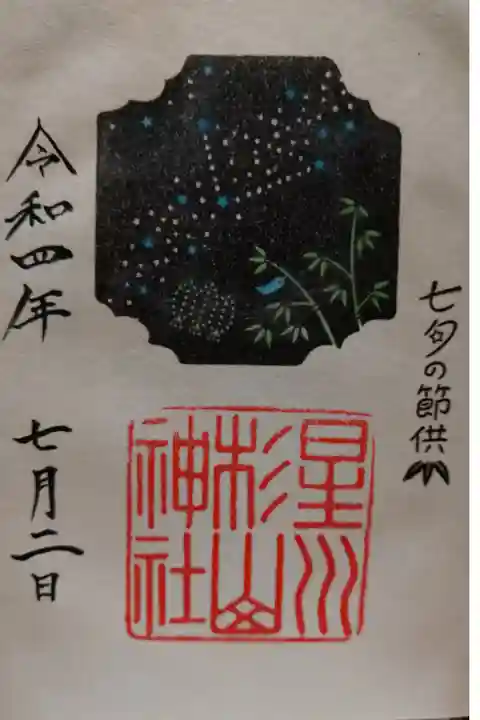 七夕の節供
星川
杉山
神社
令和四年 七月二日